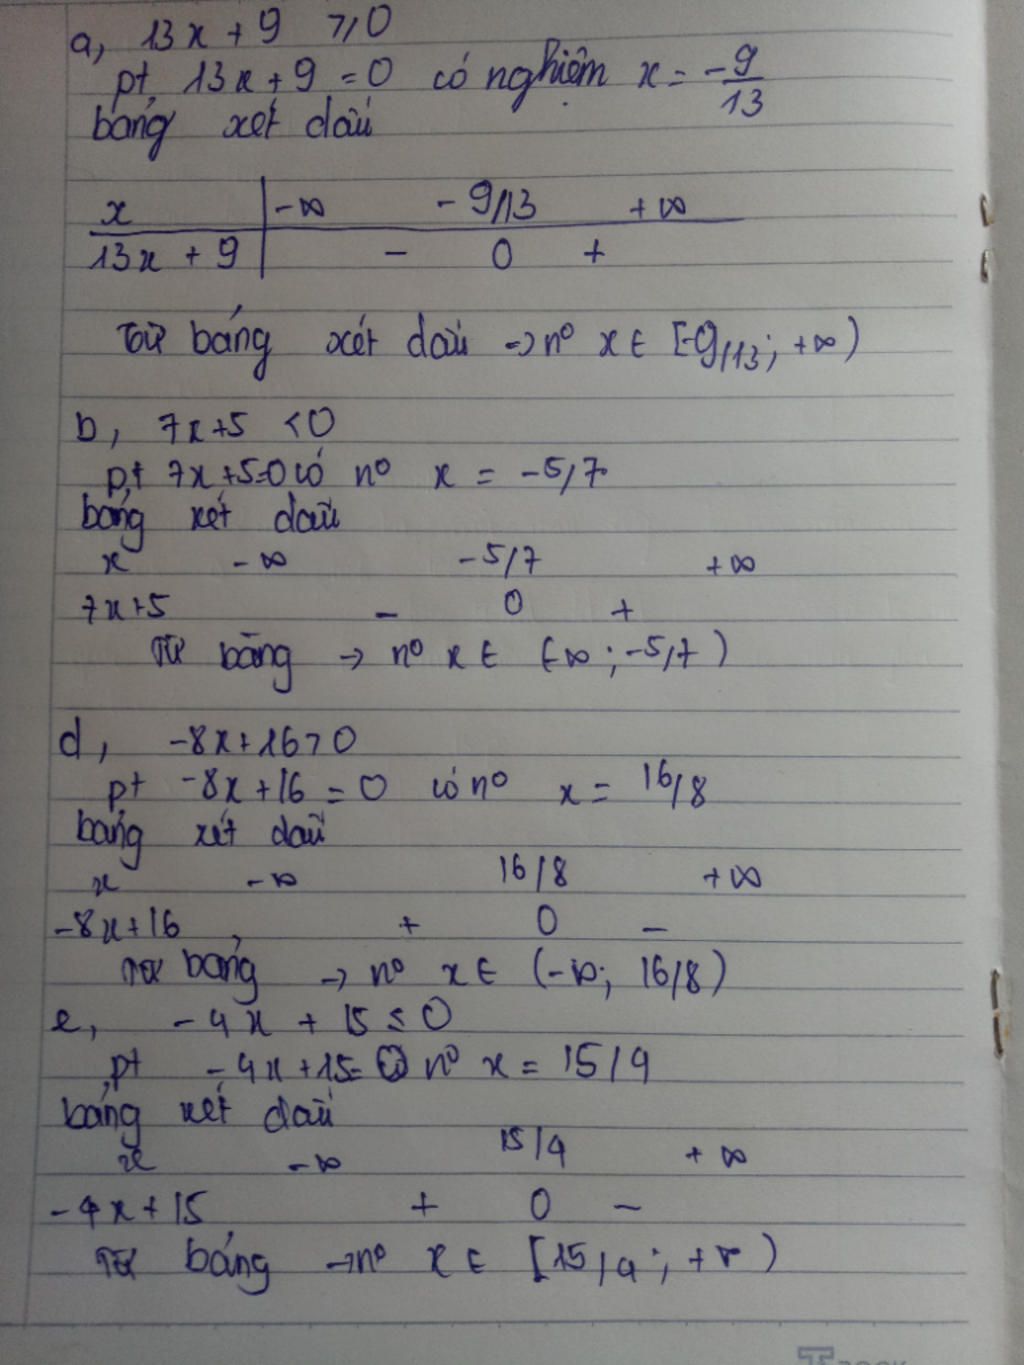 a, 13x + 9 ⩾ 0
pt 13x + 9 = 0 có nghiệm x = -9/13
bảng xét dấu
x -∞ -9/13 +∞
13x + 9 - 0 +
Từ bảng xét dấu → n⁰ x ∈ [-9/13; +∞)
b, 7x+5 < 0
pt 7x+5=0 có n⁰ x = -5/7
bảng xét dấu
x -∞ -5/7 +∞
7x+5 - 0 +
Từ bảng → n⁰ x ∈ (-∞; -5/7)
d, -8x+16 > 0
pt -8x+16 = 0 có n⁰ x = 16/8
bảng xét dấu
x -∞ 16/8 +∞
-8x+16 + 0 -
Từ bảng → n⁰ x ∈ (-∞; 16/8)
e, -4x + 15 ≤ 0
pt -4x+15= n⁰ x = 15/4
bảng xét dấu
x -∞ 15/4 +∞
-4x+15 + 0 -
Từ bảng → n⁰ x ∈ [15/4; +∞)